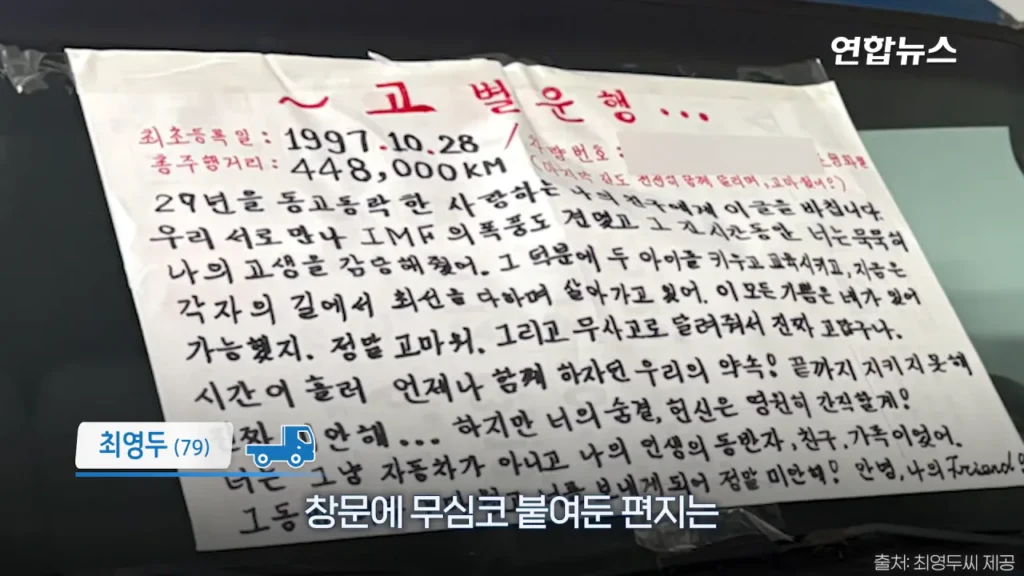 연합뉴스
~ 고별운행...
최초등록일 : 1997.10.28 / 차량번호 :
총주행거리 : 448,000KM (마지막 길도 천천히 함께 달리며, 고마웠어?)
29년을 동고동락한 사랑하는 나의 친구에게 이글을 바칩니다.
우리 서로만나 IMF의폭풍도 견뎠고 그 긴 시간동안 너는묵묵히
나의 고생을 감당해줬어. 그 덕분에 두 아이를 키우고 교육시키고, 지금은
각자의 길에서 최선을 다하며 살아가고 있어. 이 모든 기쁨은 네가 있어
가능했지. 정말 고마워. 그리고 무사고로 달려줘서 진짜 고맙구나.
시간이 흘러 언제나 함께 하자던 우리의 약속! 끝까지 지키지 못해
안해... 하지만 너의 숨결, 헌신은 영원히 간직할게!
너는 그냥 자동차가 아니고 나의 인생의 동반자, 친구, 가족이었어.
그동 보내게되어 정말 미안해! 안녕, 나의 Friend
최영두 (79)
창문에 무심코 붙여둔 편지는
출처: 최영두씨 제공